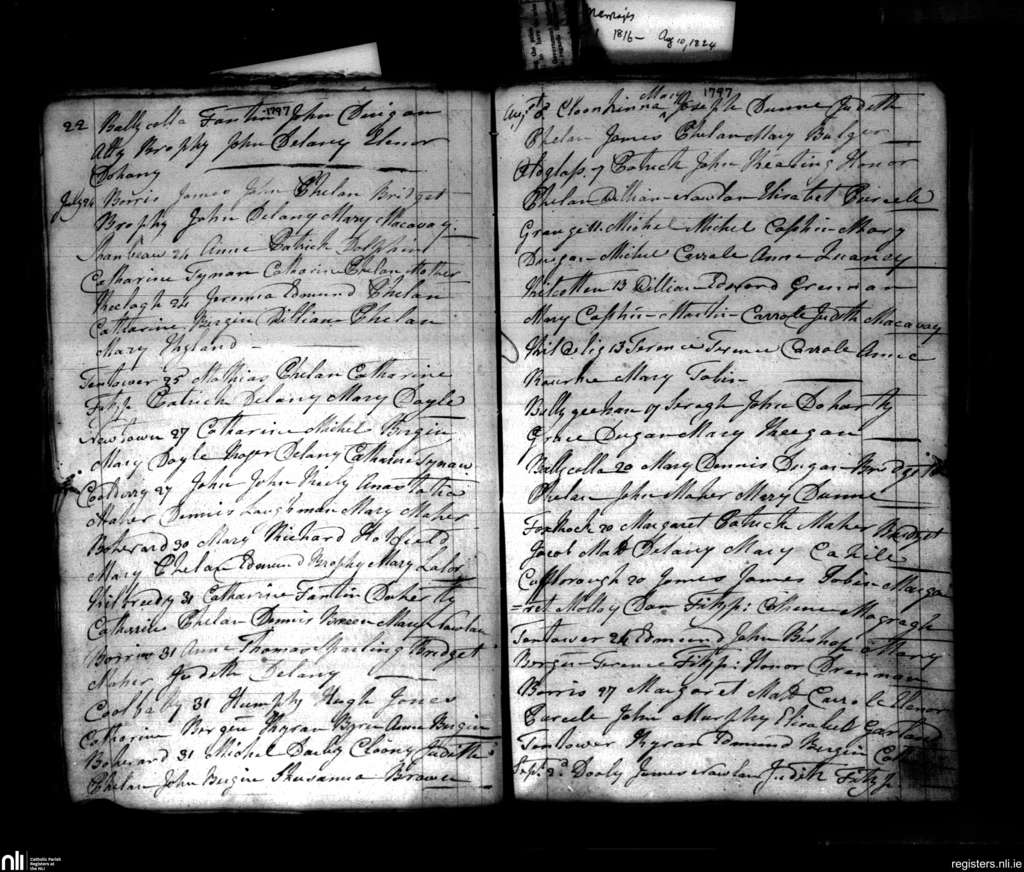 Marriages
1816 - Aug 10, 1824
1797
22 Ballycolla Fantin John Duigan
Atty Brophy John Delany Elenor
Dohany
July 26 Borris James John Phelan Bridget
Brophy John Delany Mary Macavay
Shanbeau 24 Anne Patrick
Catharine Tynan Catharin Phelan Mother
24 Jeremia Edmund Phelan
Catharine Bergin Dillian Phelan
Mary Hyland
Tentower 25 Mathias Phelan Catharine
Fitzp Patrick Delany Mary Doyle
Newtown 27 Catharine Michel Bergin
Mary Doyle Roger Delany Catharine Tynan
27 John John Neily Anastatia
Maher Dennis Laughman Mary Maher
Boherard 30 Mary Richard
Mary Phelan Edmund Brophy Mary Lalor
Kilbreedy 31 Catharine Fantin Doherty
Catharine Phelan Dennis Breen Mary Nowlan
Borris 31 Anne Thomas Sparling Bridget
Maher Judith Delany
Coolbally 31 Humphy Hugh Jones
Catharine Bergin Kyran Byrn Anne Bergin
Boherard 31 Michel Darby Cloony Judith
Phelan John Bergin Shusanna Brown
1797
Augst 8 Cloonkinna Mary Joseph Dunne Judith
Phelan James Phelan Mary Bulger
Oldglass 9 Patrick John Keating Honor
Phelan Dillian Nowlan Elisabet Purcele
Grange 11 Michel Michel Caphin Mary
Duigan Michel Carrole Anne Quancy
Kilcotten 13 Dillian Edword Grennan
Mary Caphin Martin Carrole Judith Macavay
13 Terence Terence Carrole Anne
Rourke Mary Tobin
Ballygeehan 17 John Doharty
Grace Dugan Mary Keegan
Ballycolla 20 Mary Dennis Dugan Bridget
Phelan John Maher Mary Dunne
Foxrock 20 Margaret Patrick Maher Bridget
Jacob Matt Delany Mary Cahile
20 James James Tobin Marga
=ret Molloy Dan Fitzp: Magragh
Tentower 24 Edmund John Bishop Mary
Bergin Terence Fitzp: Honor Drennan
Borris 27 Margaret Matt Carrole Elenor
Purcele John Murphy Elisabet Garland
Tentower Kyran Edmund Bergin
Sept 3d Dooly James Nowlan Judith Fitzp.
nli
Catholic Parish
Registers at
the NLI
registers.nli.ie